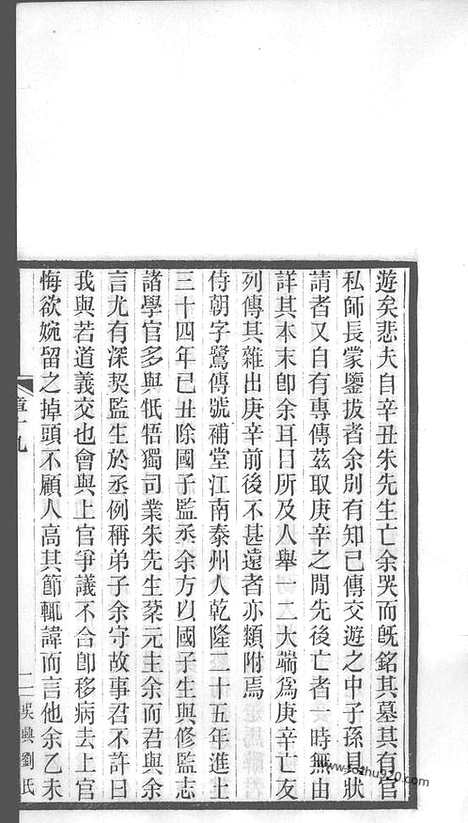 遊矣悲夫自辛丑朱先生亡余哭而旣銘其墓其有官
私師長蒙鑒拔者余別有知己傳交遊之中子孫具狀
請者又自有專傳茲取庚辛之閒先後亡者一時無由
詳其本末卽余耳目所及人舉一二大端爲庚辛亡友
列傳其雜出庚辛前後不甚遠者亦類附焉
侍朝字鷺傳號補堂江南泰州人乾隆二十五年進士
三十四年己丑除國子監丞余方以國子生與修監志
諸學官多與牴牾獨司業朱先生棻元主余而君與余
言尤有深契監生於丞例稱弟子余守故事君不許曰
我與若道義交也會與上官爭議不合卽移病去上官
悔欲婉留之掉頭不顧人高其節輒諱而言他余乙未
章十九
二
吳興劉氏
www.sothu920.com